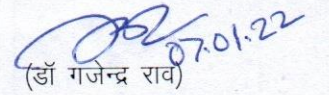 07.01.22
(डॉ गजेन्द्र राव)